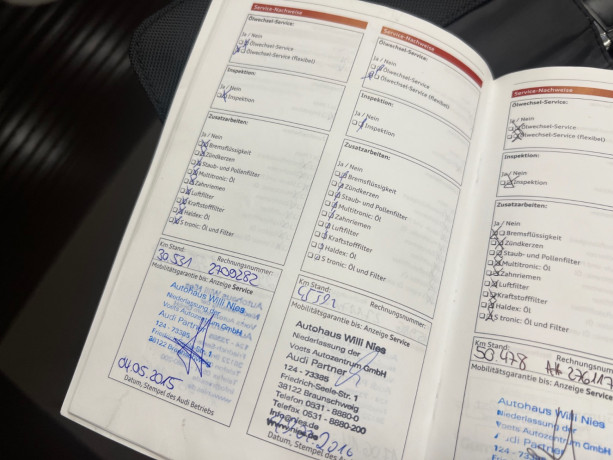 Service-Nachweise
Ölwechsel-Service:
Ja / Nein
Ölwechsel-Service
Ölwechsel-Service (flexibel)
Inspektion:
Ja / Nein
Inspektion
Zusatzarbeiten:
Ja / Nein
Bremsflüssigkeit
Zündkerzen
Staub- und Pollenfilter
Multitronic: Öl
Zahnriemen
Luftfilter
Kraftstofffilter
Haldex: Öl
S tronic: Öl und Filter
Km Stand: Rechnungsnummer:
30 531 2700282
Mobilitätsgarantie bis: Anzeige Service
Autohaus Willi Nies
Niederlassung der
Voets Autozentrum GmbH
Audi Partner
124 - 73385
38122 Braunschweig
04.05.2015
Datum, Stempel des Audi Betriebs
Service-Nachweise
Ölwechsel-Service:
Ja / Nein
Ölwechsel-Service
Ölwechsel-Service (flexibel)
Inspektion:
Ja / Nein
Inspektion
Zusatzarbeiten:
Ja / Nein
Bremsflüssigkeit
Zündkerzen
Staub- und Pollenfilter
Multitronic: Öl
Zahnriemen
Luftfilter
Kraftstofffilter
Haldex: Öl
S tronic: Öl und Filter
Km Stand: Rechnungsnummer:
Mobilitätsgarantie bis: Anzeige Service
Autohaus Willi Nies
Niederlassung der
Voets Autozentrum GmbH
Audi Partner
124 - 73385
Friedrich-Seele-Str. 1
38122 Braunschweig
Telefon 0531 - 8880-0
Telefax 0531 - 8880-200
Info@nies.de
www.nies.de
Datum, Stempel des Audi Betriebs
Service-Nachweise
Ölwechsel-Service:
Ja / Nein
Ölwechsel-Service
Ölwechsel-Service (flexibel)
Inspektion:
Ja / Nein
Inspektion
Zusatzarbeiten:
Ja / Nein
Bremsflüssigkeit
Zündkerzen
Staub- und Pollenfilter
Multitronic: Öl
Zahnriemen
Luftfilter
Kraftstofffilter
Haldex: Öl
S tronic: Öl und Filter
Km Stand: Rechnungsnum
50.478
Mobilitätsgarantie bis: Anzeige Service
Autohaus Willi Nies
Niederlassung der
Voets Autozentrum GmbH
Audi Partner